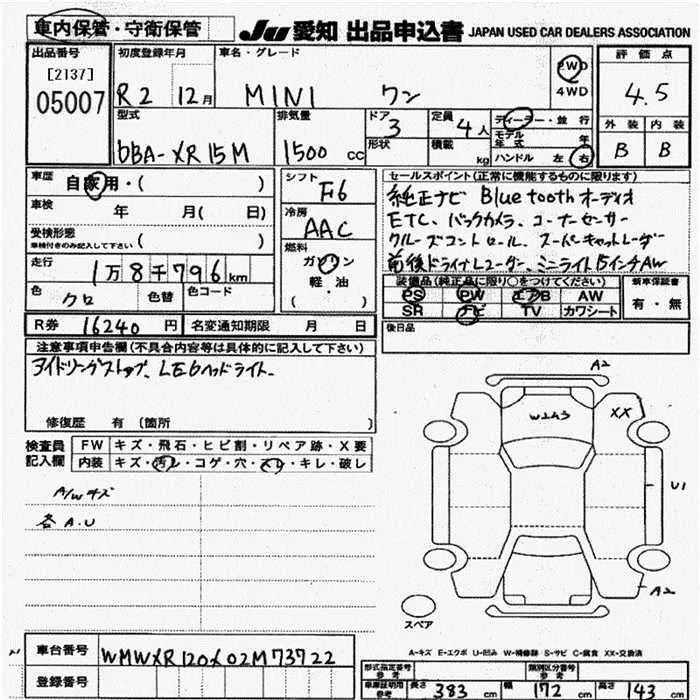 車内保管・守衛保管 Ju 愛知 出品申込書 JAPAN USED CAR DEALERS ASSOCIATION
出品番号 初度登録年月 車名・グレード 評価点
[2137] 2WD
05007 R2 12月 MINI ワン 4WD 4.5
型式 排気量 ドア 定員 ディーラー・並行 外装 内装
3 4人 モデル年式 年
DBA-XR15M 1500cc 形状 積載 kg ハンドル 左 右 B B
車歴 自家用・( ) シフト F6 セールスポイント(正常に機能するものに限ります)
純正ナビ Bluetoothオーディオ
車検 年 月( 日) 冷房 AAC ETC、バックカメラ、コーナーセンサー
受検形態 ( )
車検付きのみ記入して下さい
クルーズコントロール、スーパーキャットレーダー
燃料 ガソリン 前後ドライブレコーダー、ミニライト15インチAW
走行 1万8千796km 軽・油 装備品(純正品に限り○をつけてください) 新車保証書
色 クロ 色替 色コード ( ) PS PW エアB AW 有・無
SR ナビ TV カワシート
R券 16240円 名変通知期限 月 日 後日品
注意事項申告欄(不具合内容等は具体的に記入して下さい)
アイドリングストップ、LEDヘッドライト
修復歴 有 (箇所 )
A2
W2 XX
検査員 FW キズ・飛石・ヒビ割・リペア跡・X要
記入欄 内装 キズ・汚レ・コゲ・穴・スレ・キレ・破し
A/Wキズ
U1
各A.U
A2
スペア
A-キズ E-エクボ U-凹み W-補修跡 S-サビ C-腐食 XX-交換済
車台番号 WMWXR120X02M73722
型式指定番号 類別区分番号
参考 参考
登録番号 車庫証明用 長さ 383cm 幅 172cm 高さ 143cm